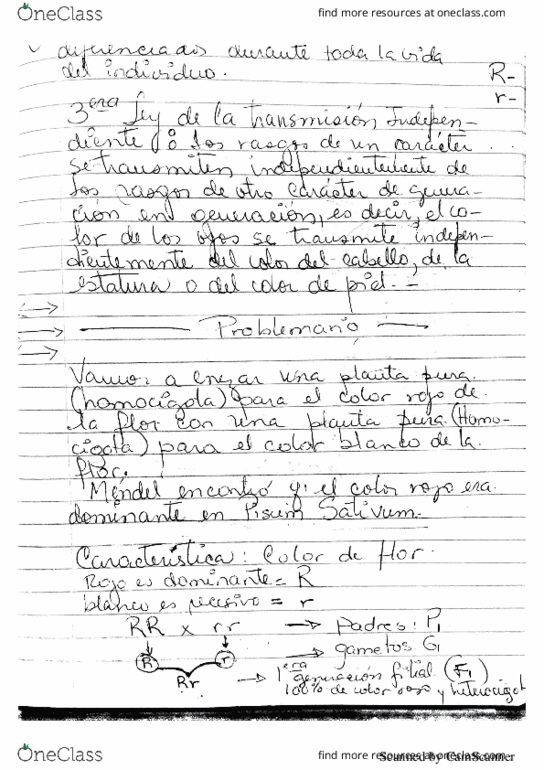 OneClass
find more resources at oneclass.com
diferenciados durante toda la vida
del individuo.
R-
r-
3era Ley de la transmisión Indepen-
diente: Los rasgos de un carácter
se transmiten independientemente de
los rasgos de otro carácter de genera-
ción en generación, es decir, el co-
lor de los ojos se transmite indepen-
dientemente del color del cabello, de la
estatura o del color de piel. -
Problemario
Vamos a cruzar una planta pura
(homocigota) para el color rojo de
la flor con una planta pura (Homo-
cigota) para el color blanco de la
flor.
Mendel encontró q: el color rojo era
dominante en Pisum Sativum.
Característica: Color de flor.
Rojo es dominante = R
blanco es recesivo = r
RR x rr → Padres: P1
→ gametos G1
R r
Rr → 1era generación filial (F1)
100% de color rojo y heterocigot
OneClass
find more resources at oneclass.com
Scanned by CamScanner